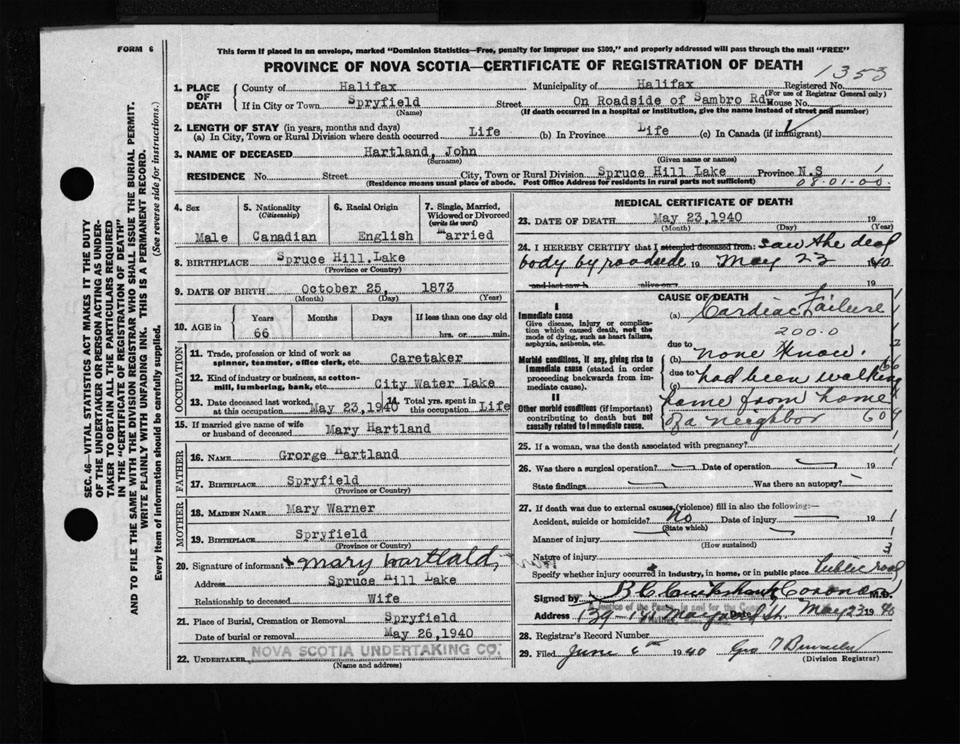 FORM 6
This form if placed in an envelope, marked "Dominion Statistics—Free, penalty for improper use $300," and properly addressed will pass through the mail "FREE"
PROVINCE OF NOVA SCOTIA—CERTIFICATE OF REGISTRATION OF DEATH
1353
1. PLACE OF DEATH
County of Halifax Municipality of Halifax Registered No.
(For use of Registrar General only)
If in City or Town Spryfield Street On Roadside of Sambro Rd. House No.
(Name) (If death occurred in a hospital or institution, give the name instead of street and number)
2. LENGTH OF STAY (in years, months and days)
(a) In City, Town or Rural Division where death occurred Life (b) In Province Life (c) In Canada (if immigrant)
3. NAME OF DECEASED Hartland, John
(Surname) (Given name or names)
RESIDENCE No. Street City, Town or Rural Division Spruce Hill Lake Province N.S
(Residence means usual place of abode. Post Office Address for residents in rural parts not sufficient) 08-01-00.
4. Sex Male
5. Nationality (Citizenship) Canadian
6. Racial Origin English
7. Single, Married, Widowed or Divorced (write the word) Married
8. BIRTHPLACE Spruce Hill Lake
(Province or Country)
9. DATE OF BIRTH October 25, 1873
(Month) (Day) (Year)
10. AGE in Years Months Days If less than one day old
66 hrs. or min.
OCCUPATION
11. Trade, profession or kind of work as spinner, teamster, office clerk, etc. Caretaker
12. Kind of industry or business, as cotton-mill, lumbering, bank, etc. City Water Lake
13. Date deceased last worked at this occupation May 23, 1940 14. Total yrs. spent in this occupation Life
15. If married give name of wife or husband of deceased Mary Hartland
FATHER
16. NAME Grorge Hartland
17. BIRTHPLACE Spryfield
(Province or Country)
MOTHER
18. MAIDEN NAME Mary Warner
19. BIRTHPLACE Spryfield
(Province or Country)
20. Signature of informant Mary
Address Spruce Hill Lake
Relationship to deceased Wife
21. Place of Burial, Cremation or Removal Spryfield
Date of burial or removal May 26, 1940
22. UNDERTAKER NOVA SCOTIA UNDERTAKING CO.
(Name and address)
MEDICAL CERTIFICATE OF DEATH
23. DATE OF DEATH May 23, 1940 19
(Month) (Day) (Year)
24. I HEREBY CERTIFY that I attended deceased from: saw the dead
body by roadside 19 May 23 1940
and last saw h alive on
CAUSE OF DEATH
I
Immediate cause
Give disease, injury or complication which caused death, not the mode of dying, such as heart failure, asphyxia, asthenia, etc.
Morbid conditions, if any, giving rise to immediate cause (stated in order proceeding backwards from immediate cause).
II
Other morbid conditions (if important) contributing to death but not causally related to immediate cause.
(a) Cardiac Failure
200.0
due to
(b) None Know.
due to
(c) had been walking
home from home
of a neighbor
609
25. If a woman, was the death associated with pregnancy?
26. Was there a surgical operation? Date of operation 19
State findings Was there an autopsy?
27. If death was due to external causes (violence) fill in also the following:—
Accident, suicide or homicide? No Date of injury 19
(State which)
Manner of injury
(How sustained)
Nature of injury 3
Specify whether injury occurred in industry, in home, or in public place Public road
Signed by B. C. Cruikshank Coroner M.D.
Address 139 Date May 23 1940
28. Registrar's Record Number
29. Filed June 6th 1940 Geo
(Division Registrar)
SEC. 46—VITAL STATISTICS ACT MAKES IT THE DUTY
OF THE UNDERTAKER OR PERSON ACTING AS UNDER-
TAKER TO OBTAIN ALL THE PARTICULARS REQUIRED
IN THE "CERTIFICATE OF REGISTRATION OF DEATH"
AND TO FILE THE SAME WITH THE DIVISION REGISTRAR WHO SHALL ISSUE THE BURIAL PERMIT.
WRITE PLAINLY WITH UNFADING INK. THIS IS A PERMANENT RECORD.
Every item of information should be carefully supplied. (See reverse side for instructions.)